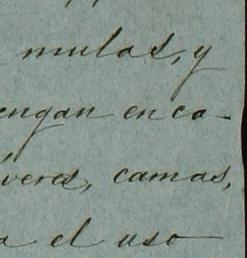 mulas, y
engan en ca-
veres, camas,
a el uso